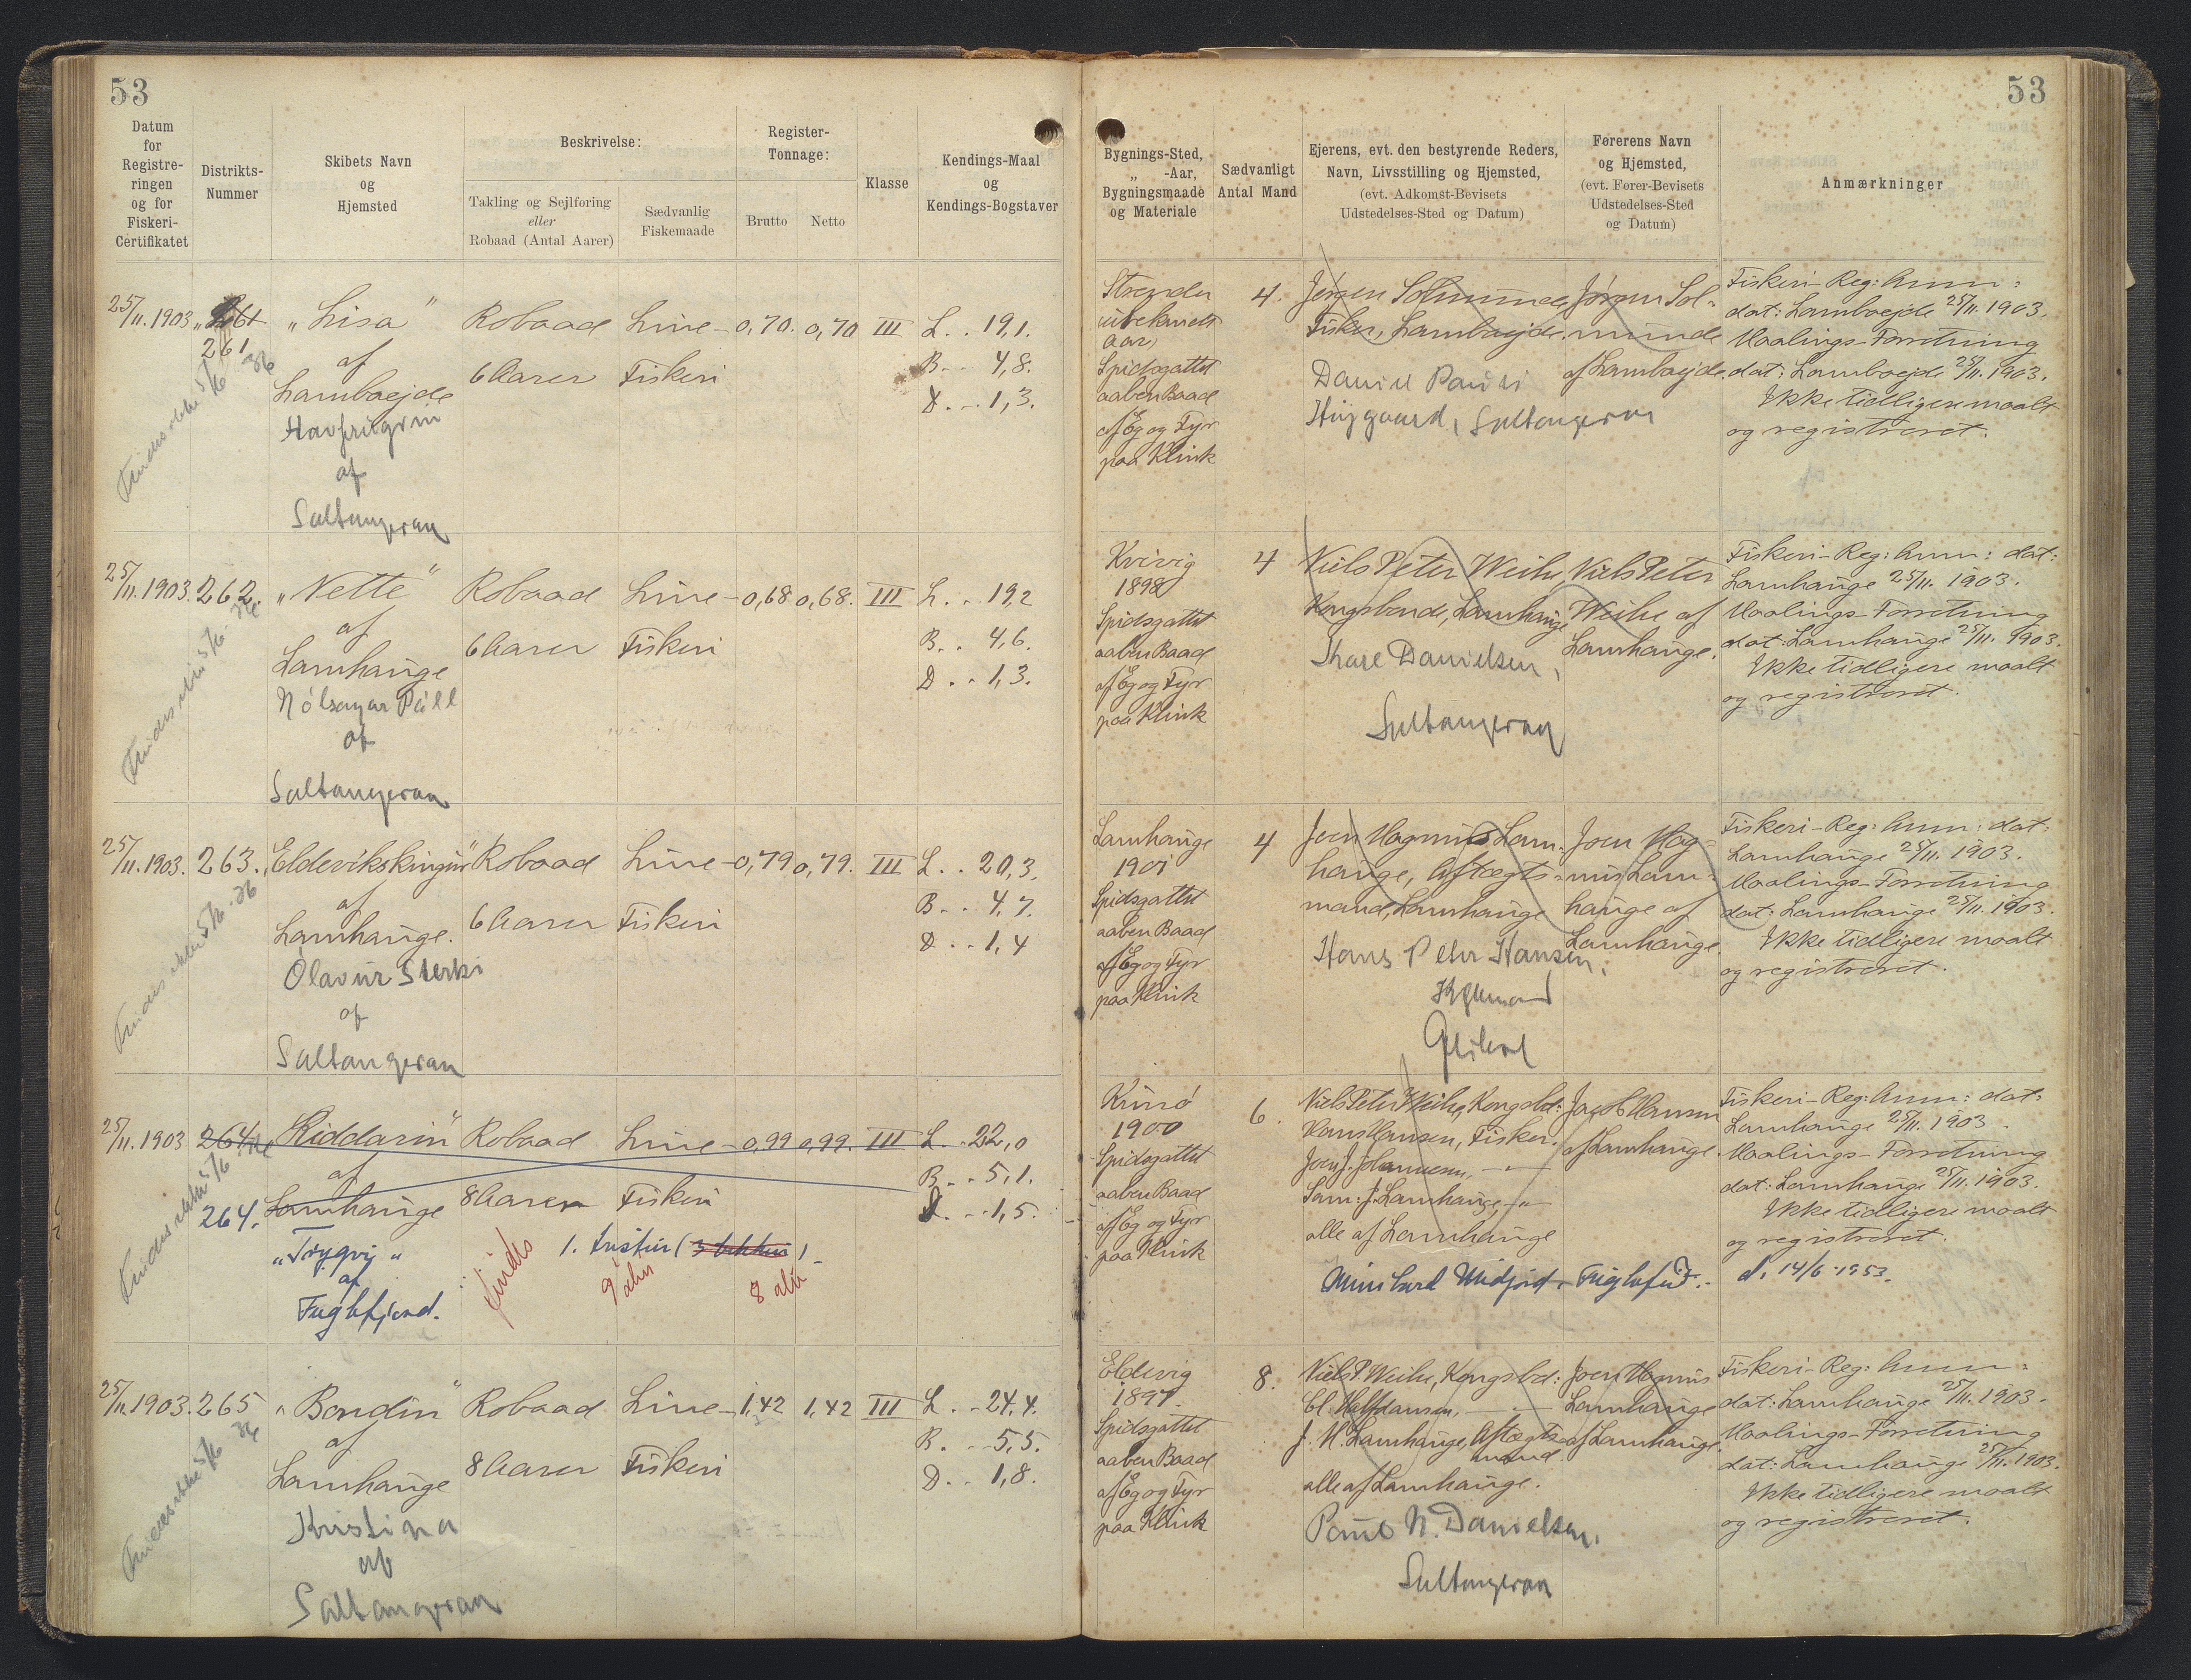 53
53
Datum
for
Registre-
ringen
og for
Fiskeri-
Certifikatet
Distrikts-
Nummer
Skibets Navn
og
Hjemsted
Beskrivelse:
Takling og Sejlføring
eller
Robaad (Antal Aarer)
Sædvanlig
Fiskemaade
Register-
Tonnage:
Brutto
Netto
Klasse
Kendings-Maal
og
Kendings-Bogstaver
Bygnings-Sted,
„ -Aar,
Bygningsmaade
og Materiale
Sædvanligt
Antal Mand
Ejerens, evt. den bestyrende Reders,
Navn, Livsstilling og Hjemsted,
(evt. Adkomst-Bevisets
Udstedelses-Sted og Datum)
Førerens Navn
og Hjemsted,
(evt. Fører-Bevisets
Udstedelses-Sted
og Datum)
Anmærkninger
25/11.1903
261
"Lisa"
af
Lamboejde
Havfrúgvin
af
Saltangeran
Robaad
6 Aarer
Line-
Fiskeri
0,70. 0,70 III
L. . 19,1.
B. . 4,8.
D. . 1,3.
Strender
ubekendt
Aar,
Spidsgattet
aaben Baad
af Eg og Fyr
paa Klink
4.
Jørgen Solmunde,
Fisker, Lamboejde.
Daniel Pauli
Højgaard, Saltangeran
Jørgen Sol-
munde
af Lamboejde.
Fiskeri-Reg: Anm:
dat: Lamboejde 25/11. 1903.
Maalings-Forretning
dat: Lamboejde 25/11. 1903.
Ikke tidligere maalt
og registreret.
25/11.1903. 262.
"Nette"
af
Lamhauge
Nólsoyar Páll
af
Saltangeran
Robaad
6 Aarer
Line-
Fiskeri
0,68 0,68. III
L. . 19,2
B. . 4,6.
D. . 1,3.
Kvivig
1898
Spidsgattet
aaben Baad
af Eg og Fyr
paa Klink
4
Niels Peter Weihe,
Kongsbonde, Lamhauge
Danielsen,
Saltangeran
Niels Peter
Weihe af
Lamhauge.
Fiskeri-Reg: Anm: dat:
Lamhauge 25/11. 1903.
Maalings-Forretning
dat: Lamhauge 25/11. 1903.
Ikke tidligere maalt
og registreret.
25/11.1903. 263.
"Eldevikskingur"
af
Lamhauge.
Ólavur Sterki
af
Saltangeran
Robaad
6 Aarer
Line-
Fiskeri
0,79 0,79. III
L. . 20,3.
B. . 4,7.
D. . 1,4
Lamhauge
1901
Spidsgattet
aaben Baad
af Eg og Fyr
paa Klink
4
Joen Magnus Lam-
hauge, Aftægts-
mand, Lamhauge
Hans Peter Hansen,
Joen Mag-
nus Lam-
hauge af
Lamhauge.
Fiskeri-Reg: Anm: dat:
Lamhauge 25/11. 1903.
Maalings-Forretning
dat: Lamhauge 25/11. 1903.
Ikke tidligere maalt
og registreret.
25/11.1903 264
264.
"Riddarin"
af
Lamhauge
"Trygvi"
af
Fuglefjord.
Robaad
8 Aarer
Line-
Fiskeri
0,99 0,99. III
L. . 22,0
B. . 5,1.
D. . 1,5.
findes
8 alin
Kunø
1900
Spidsgattet
aaben Baad
af Eg og Fyr
paa Klink
6.
Niels Peter Weihe, Kongsbd:
Hans Hansen, Fisker.
Joen J. Johannesen, —"—
Sam: J. Lamhauge, —"—
alle af Lamhauge
Midjord, Fuglefjd.
Hansen
af Lamhauge.
Fiskeri-Reg: Anm: dat:
Lamhauge 25/11. 1903.
Maalings-Forretning
dat: Lamhauge 25/11. 1903.
Ikke tidligere maalt
og registreret.
d. 14/6-1953.
25/11.1903. 265
"Bondin"
af
Lamhauge
Kristina
af
Saltangeran
Robaad
8 Aarer
Line-
Fiskeri
1,42 1,42 III
L. . 24,4.
B. . 5,5.
D. . 1,8.
Eldevig
1897.
Spidsgattet
aaben Baad
af Eg og Fyr
paa Klink
8.
Niels P. Weihe, Kongsbd:
Cl. Halfdansen, —"—
J. M. Lamhauge, Aftægts-
mand
alle af Lamhauge.
Poul N. Danielsen,
Saltangeran
Joen Magnus
Lamhauge
af Lamhauge.
Fiskeri-Reg: Anm:
dat: Lamhauge 25/11. 1903.
Maalings-Forretning
dat: Lamhauge 25/11. 1903.
Ikke tidligere maalt
og registreret.